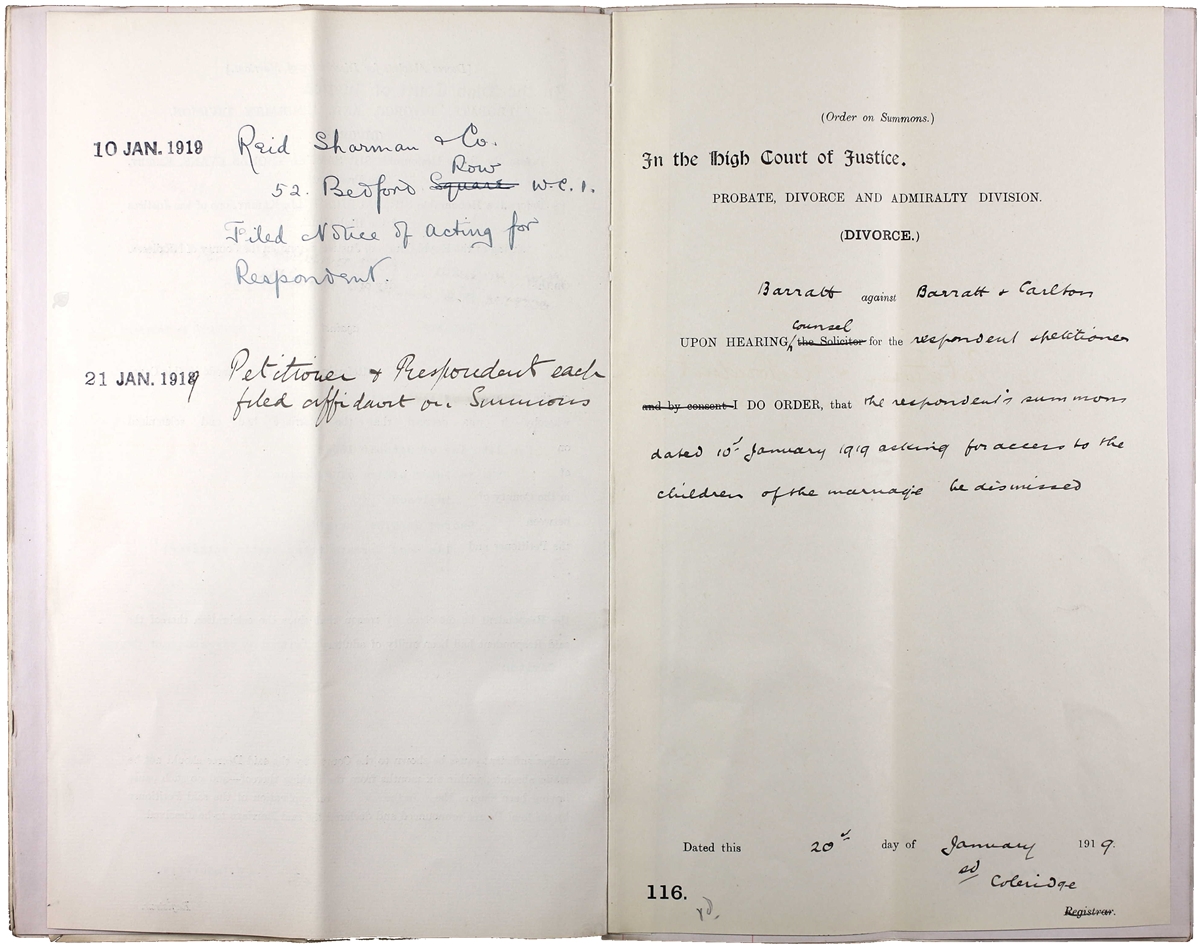 10 JAN. 1919 Reid Sharman & Co.
52. Bedford Square Row W.C.1.
Filed Notice of acting for
Respondent.
21 JAN. 1919 Petitioner & Respondent each
filed affidavit on Summons
(Order on Summons.)
In the High Court of Justice.
PROBATE, DIVORCE AND ADMIRALTY DIVISION.
(DIVORCE.)
Barratt against Barratt & Carlton
Counsel
UPON HEARING the Solicitor for the respondent & petitioner
and by consent I DO ORDER, that the respondent's summons
dated 10th January 1919 asking for access to the
children of the marriage be dismissed
Dated this 20th day of January 1919.
sd Coleridge
116.
Registrar.